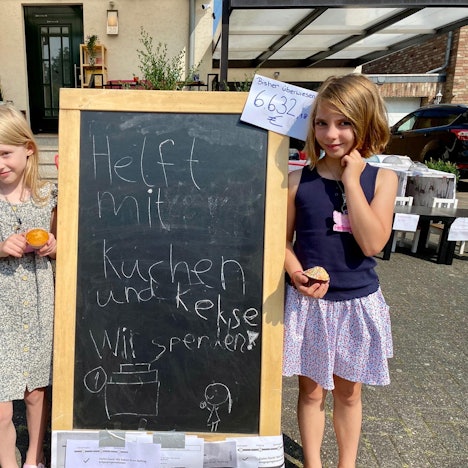 Bisher überwiesen
6.632,
€
Helft
mit
Kuchen
und Kekse
Wir spenden!